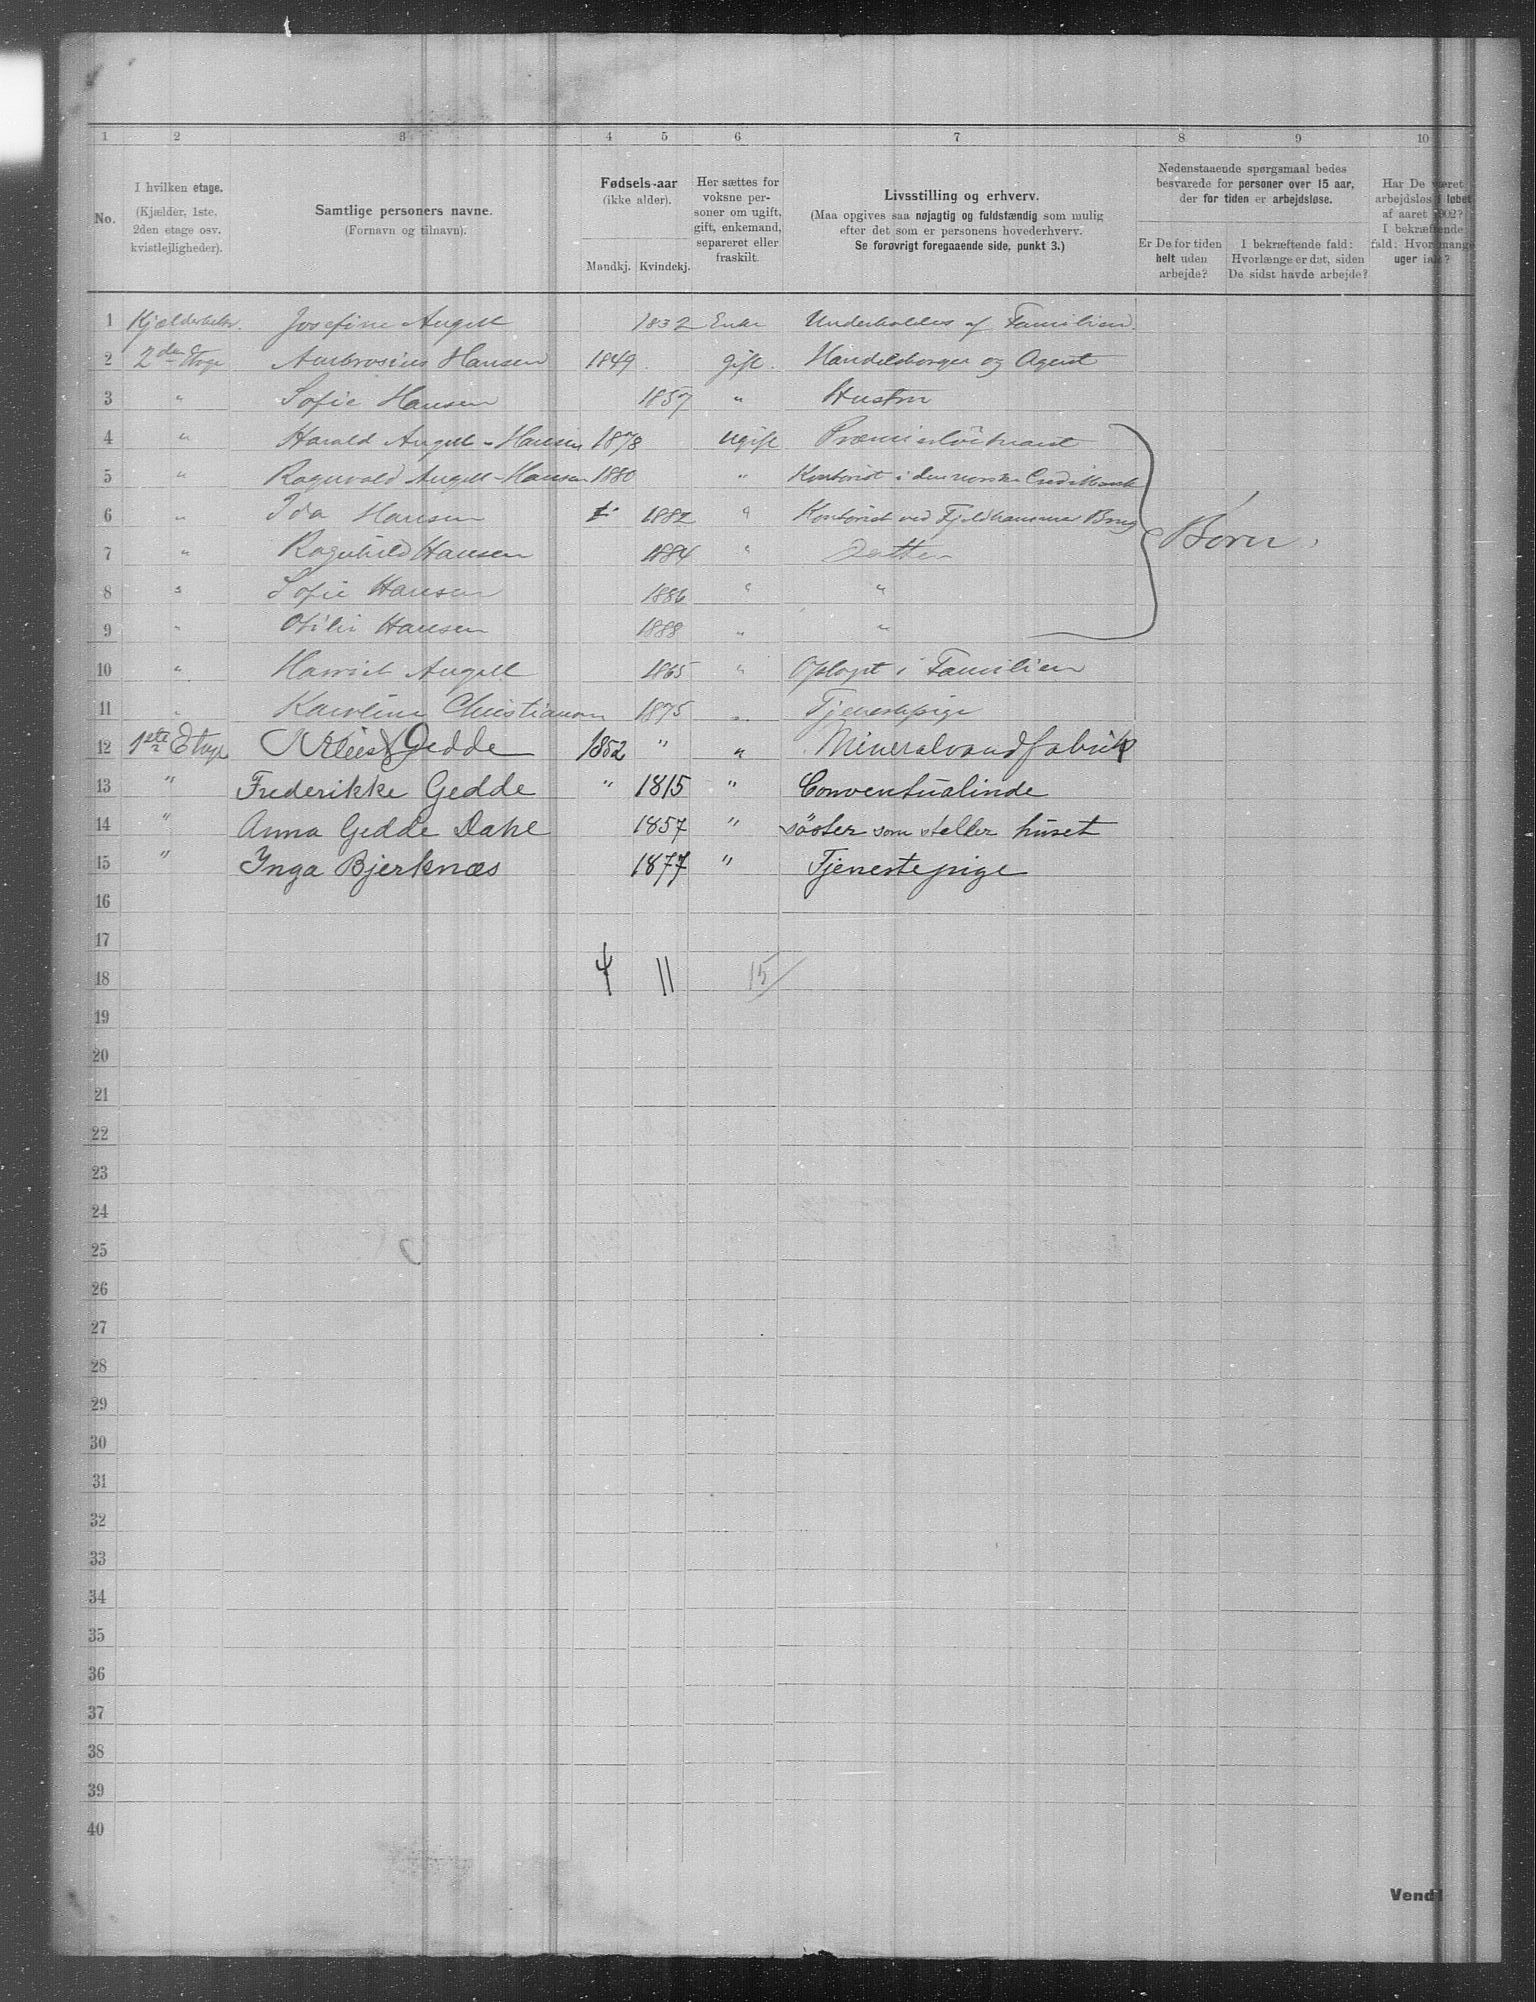 1 2 3 4 5 6 7 8 9 10
No.
I hvilken etage.
(Kjælder, 1ste,
2den etage osv.
kvistlejligheder).
Samtlige personers navne.
(Fornavn og tilnavn).
Fødsels-aar
(ikke alder).
Mandkj. Kvindekj.
Her sættes for
voksne per-
soner om ugift,
gift, enkemand,
separeret eller
fraskilt.
Livsstilling og erhverv.
(Maa opgives saa nøjagtig og fuldstændig som mulig
efter det som er personens hovederhverv.
Se forøvrigt foregaaende side, punkt 3.)
Nedenstaaende spørgsmaal bedes
besvarede for personer over 15 aar,
der for tiden er arbejdsløse.
Er De for tiden
helt uden
arbejde?
I bekræftende fald:
Hvorlænge er det, siden
De sidst havde arbejde?
Har De været
arbejdsløs i løbet
af aaret 1902?
I bekræftende
fald: Hvor mange
uger ialt?
1 Josefine Angell 1832 Enke Underholdes af Familien.
2 2den Etage Ambrosius Hansen 1849 gift. Handelsborger og Agent
3 " Sofie Hansen 1857 " Hustru
4 " Harald Angell-Hansen 1878 ugift Premierløitnant
5 " Ragnvald Angell-Hansen 1880 " Kontorist i den norske Creditbank
6 " Ida Hansen 1882 " Kontorist ved Fjeldhammer Brug
7 " Ragnhild Hansen 1884 " Datter
8 " Sofie Hansen 1886 " "
9 " Otilie Hansen 1888 " "
Børn.
10 " Harriet Angell 1865 " Optagt i Familien
11 " Karoline Christiansen 1875 " Tjenestepige
12 1ste Etage Gedde 1852 " " Mineralvandfabrik
13 " Frederikke Gedde " 1815 " Conventualinde
14 " Anna Gedde Dahl 1857 " søster som steller huset
15 " Inga Bjerknæs 1877 " Tjenestepige
16
17
18 4 11 15/
19
20
21
22
23
24
25
26
27
28
29
30
31
32
33
34
35
36
37
38
39
40
Vend!